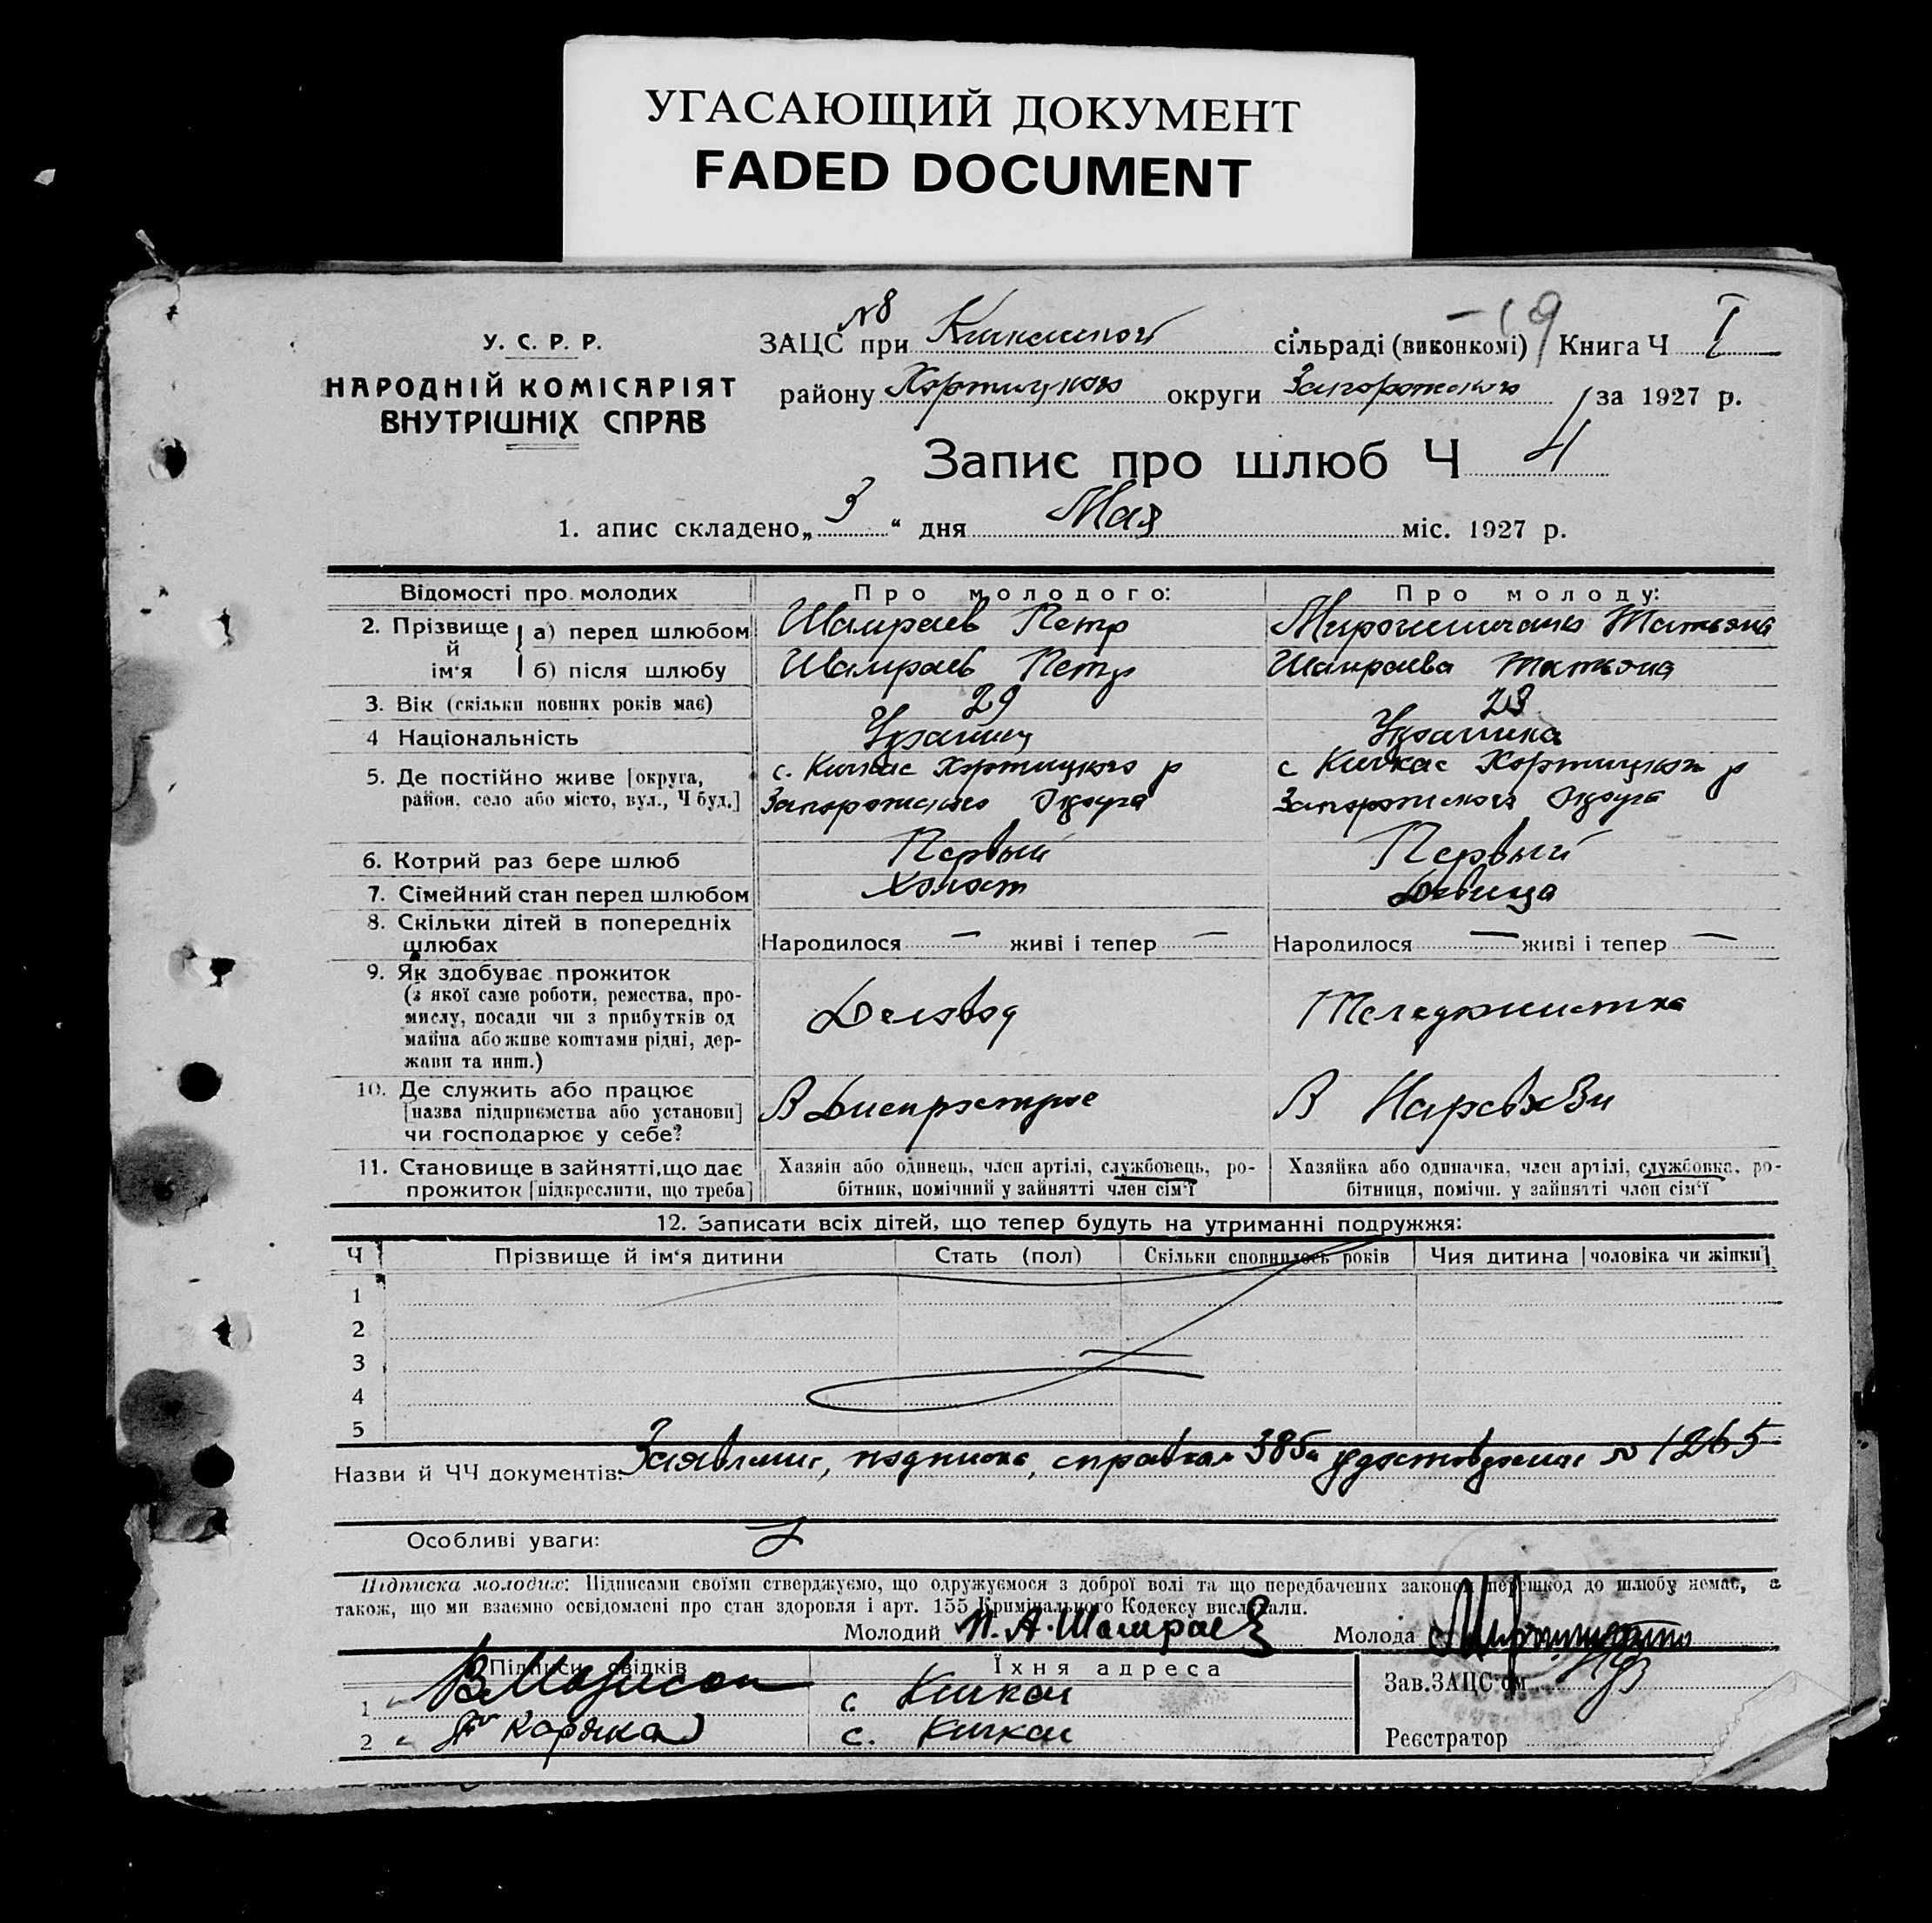 УГАСАЮЩИЙ ДОКУМЕНТ
FADED DOCUMENT
У. С. Р. Р.
НАРОДНІЙ КОМІСАРІЯТ
ВНУТРІШНІХ СПРАВ
№8
ЗАЦС при сільраді (виконкомі) 19 Книга Ч I
району Хортицкого округи Запорожского за 1927 р.
Запис про шлюб Ч 4
1. апис складено „ 3 “ дня Мая міс. 1927 р.
Відомості про молодих Про молодого: Про молоду:
2. Прізвище й ім‘я а) перед шлюбом Шамраев Петр Мирошниченко Татьяна
б) після шлюбу Шамраев Петр Шамраева Татьяна
3. Вік (скільки повних років має) 29 23
4 Національність Украинец Украинка
5. Де постійно живе [округа, с. Кичкас Хортицкого р с Кичкас Хортицкого р
район, село або місто, вул., Ч буд.] Запорожского Округа Запорожского Округа
6. Котрий раз бере шлюб Первый Первый
7. Сімейний стан перед шлюбом Холост Девица
8. Скільки дітей в попередніх
шлюбах Народилося — живі і тепер — Народилося — живі і тепер —
9. Як здобуває прожиток
(з якої саме роботи, ремества, про-
мислу, посади чи з прибутків од Деловод
майна або живе коштами рідні, дер-
жави та инш.)
10. Де служить або працює
[назва підприємства або установи] В Днепрострое В
чи господарює у себе?
11. Становище в зайнятті, що дає Хазяін або одинець, член артілі, службовець, ро- Хазяйка або одиначка, член артілі, службовка, ро-
прожиток [підкреслити, що треба] бітник, помічний у зайнятті член сім‘ї бітниця, помічн. у зайнятті член сім‘ї
12. Записати всіх дітей, що тепер будуть на утриманні подружжя:
Ч Прізвище й ім‘я дитини Стать (пол) Скільки сповнилось років Чия дитина [чоловіка чи жінки]
1
2
3
4
5
Назви й ЧЧ документів: Заявление, подписка, справка 385 и удостоверение № 1265
Особливі уваги:
Підписка молодих: Підписами своїми стверджуємо, що одружуємося з доброї волі та що передбачених законом перешкод до шлюбу немає, а
також, що ми взаємно освідомлені про стан здоровля і арт. 155 Кримінального Кодексу вислухали.
Молодий П. А. Шамраев Молода
Підписи свідків Їхня адреса
1 с. Кичкас Зав. ЗАЦС‘ом
2 Коряка с. Кичкас Реєстратор